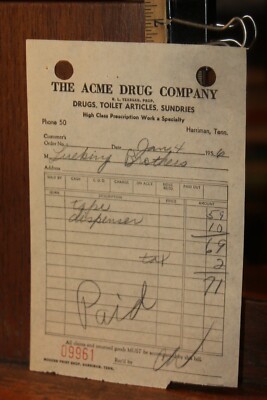 THE ACME DRUG COMPANY
DRUGS, TOILET ARTICLES, SUNDRIES
High Class Prescription Work a Specialty
Phone 50 Harriman, Tenn.
Customer's
Order No. Date Jan 4 19
M Brothers
Address
SOLD BY CASH C.O.D. CHARGE ON ACCT. PAID OUT
DESCRIPTION PRICE AMOUNT
tape 59
dispenser 10
69
tax 2
71
Paid
All claims and returned goods MUST be accompanied by this bill.
09961 Rec'd by